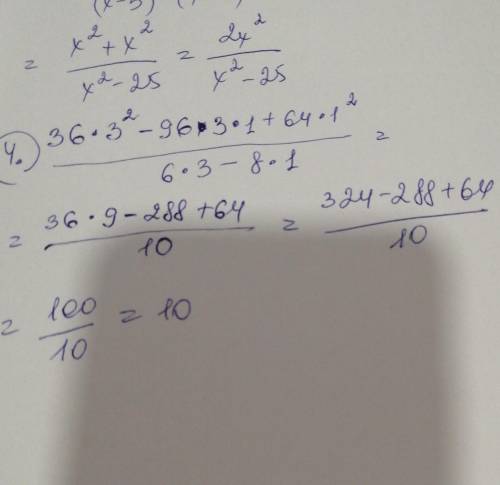 = (x² + x²)/(x² - 25) = 2x²/(x² - 25)
4.) (36·3² - 96·3·1 + 64·1²)/(6·3 - 8·1) =
= (36·9 - 288 + 64)/10 = (324 - 288 + 64)/10
= 100/10 = 10